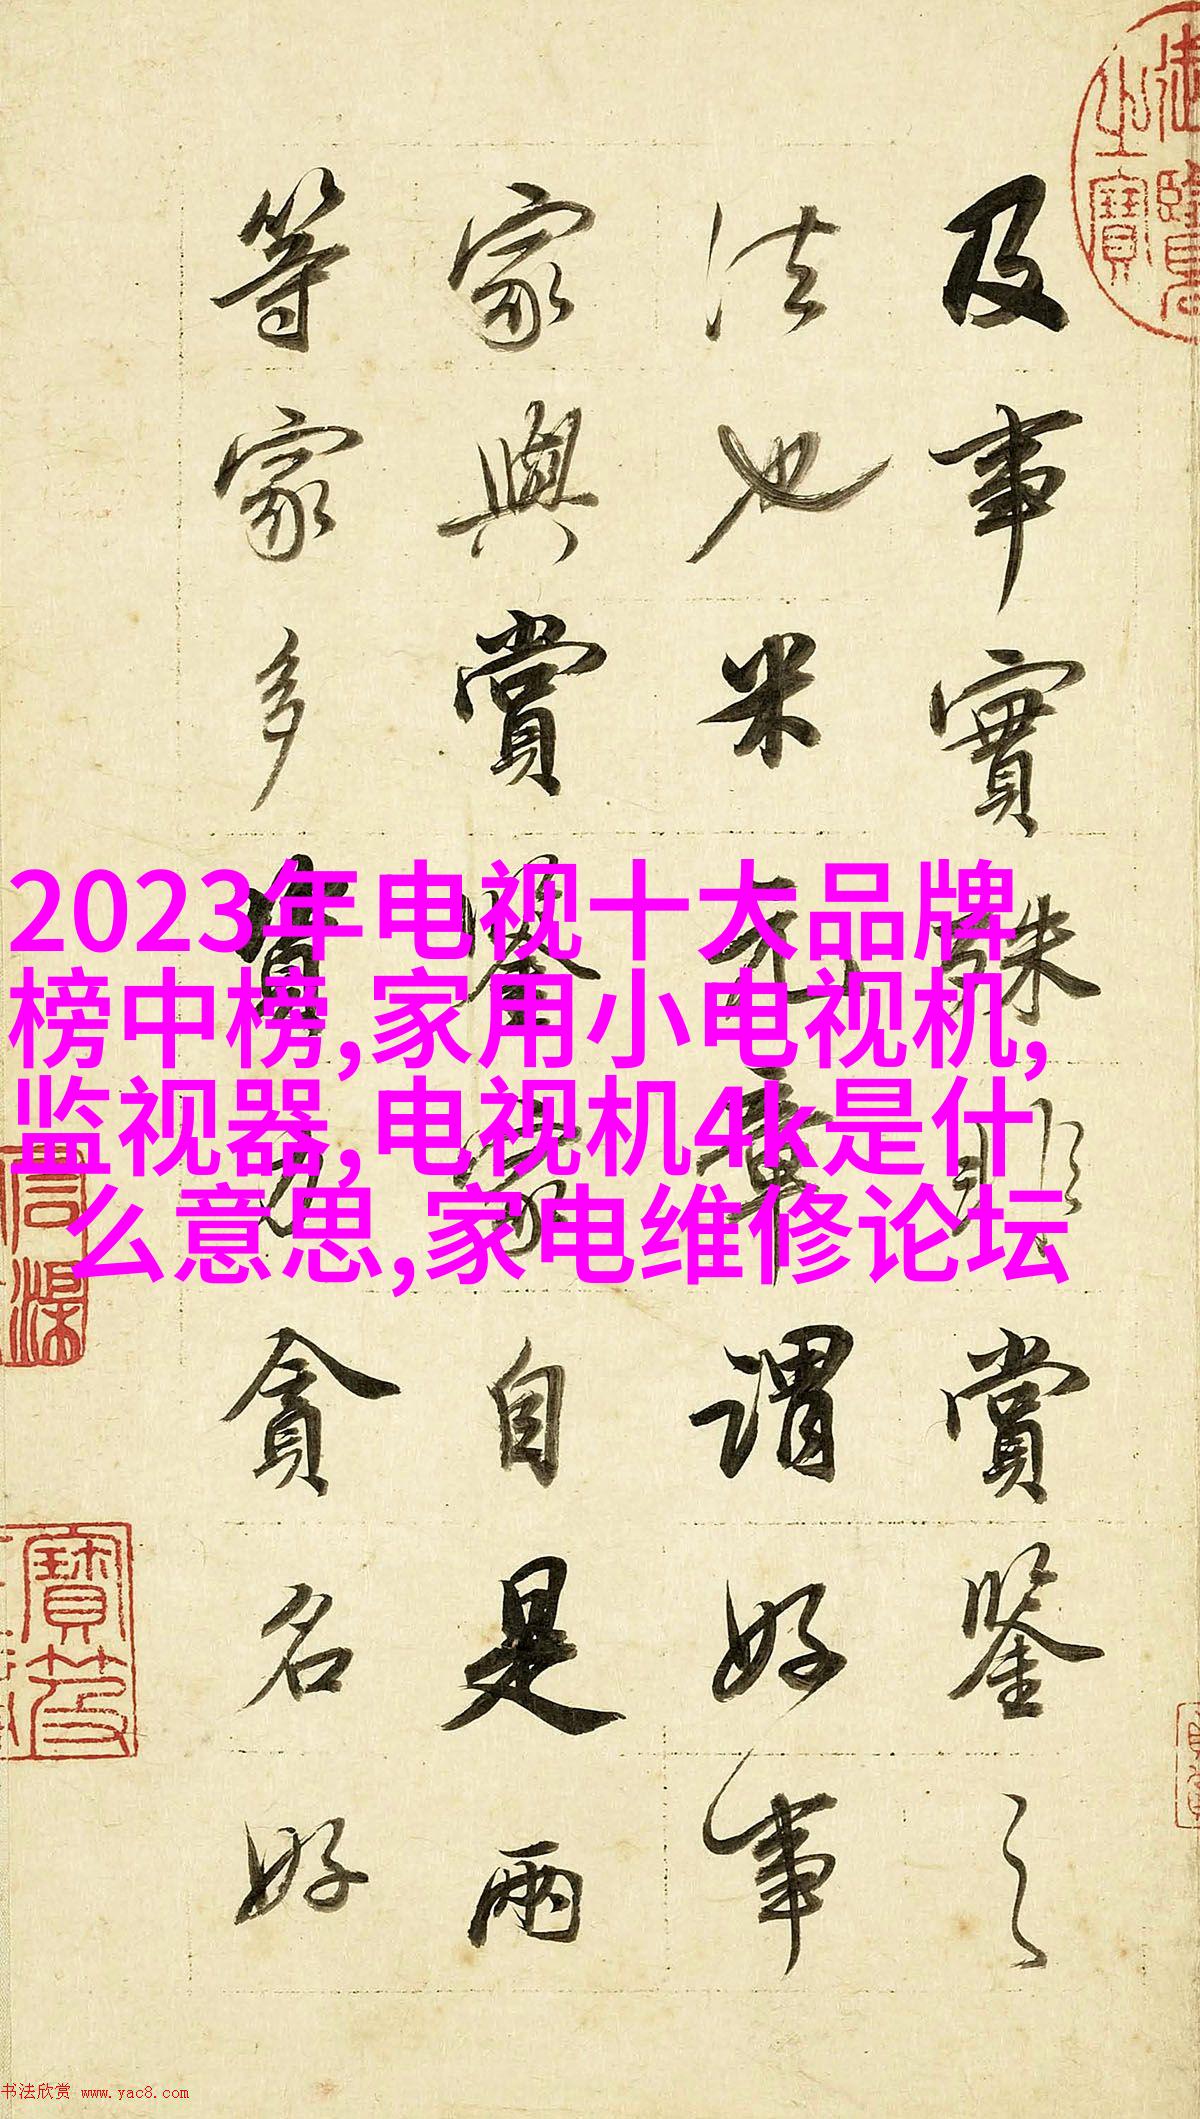 御覽之寶
及事實殊非賞鑒之
法也米元章謂好事
家與賞鑒家自是兩
等家多資力貪名好
2023年电视十大品牌
榜中榜,家用小电视机,
监视器,电视机4k是什
么意思,家电维修论坛
书法欣赏 www.yac8.com